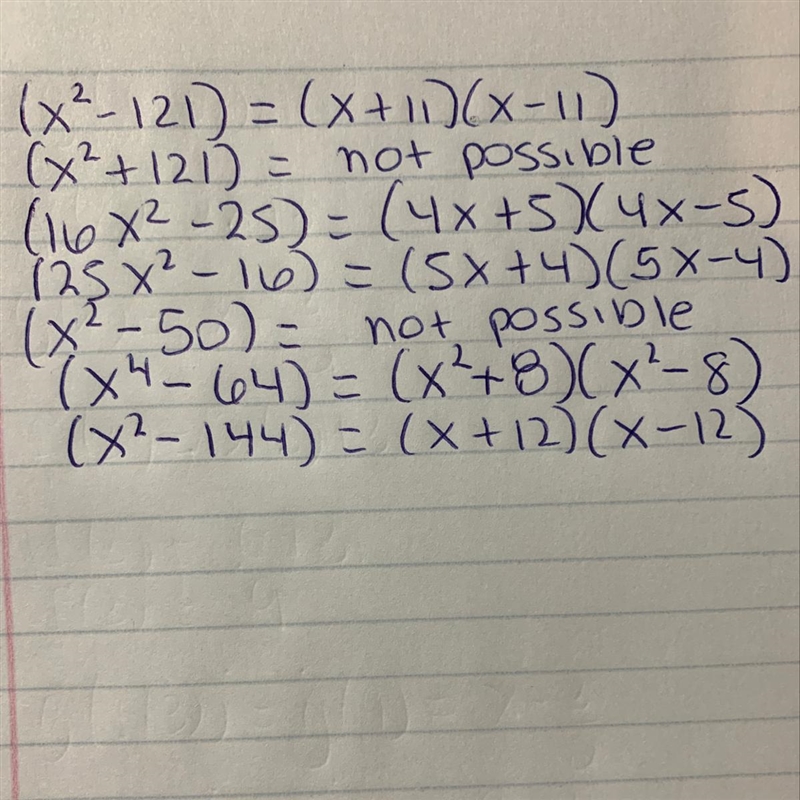 (x² - 121) = (x + 11)(x - 11)
(x² + 121) = not possible
(16x² - 25) = (4x + 5)(4x - 5)
(25x² - 16) = (5x + 4)(5x - 4)
(x² - 50) = not possible
(x⁴ - 64) = (x² + 8)(x² - 8)
(x² - 144) = (x + 12)(x - 12)